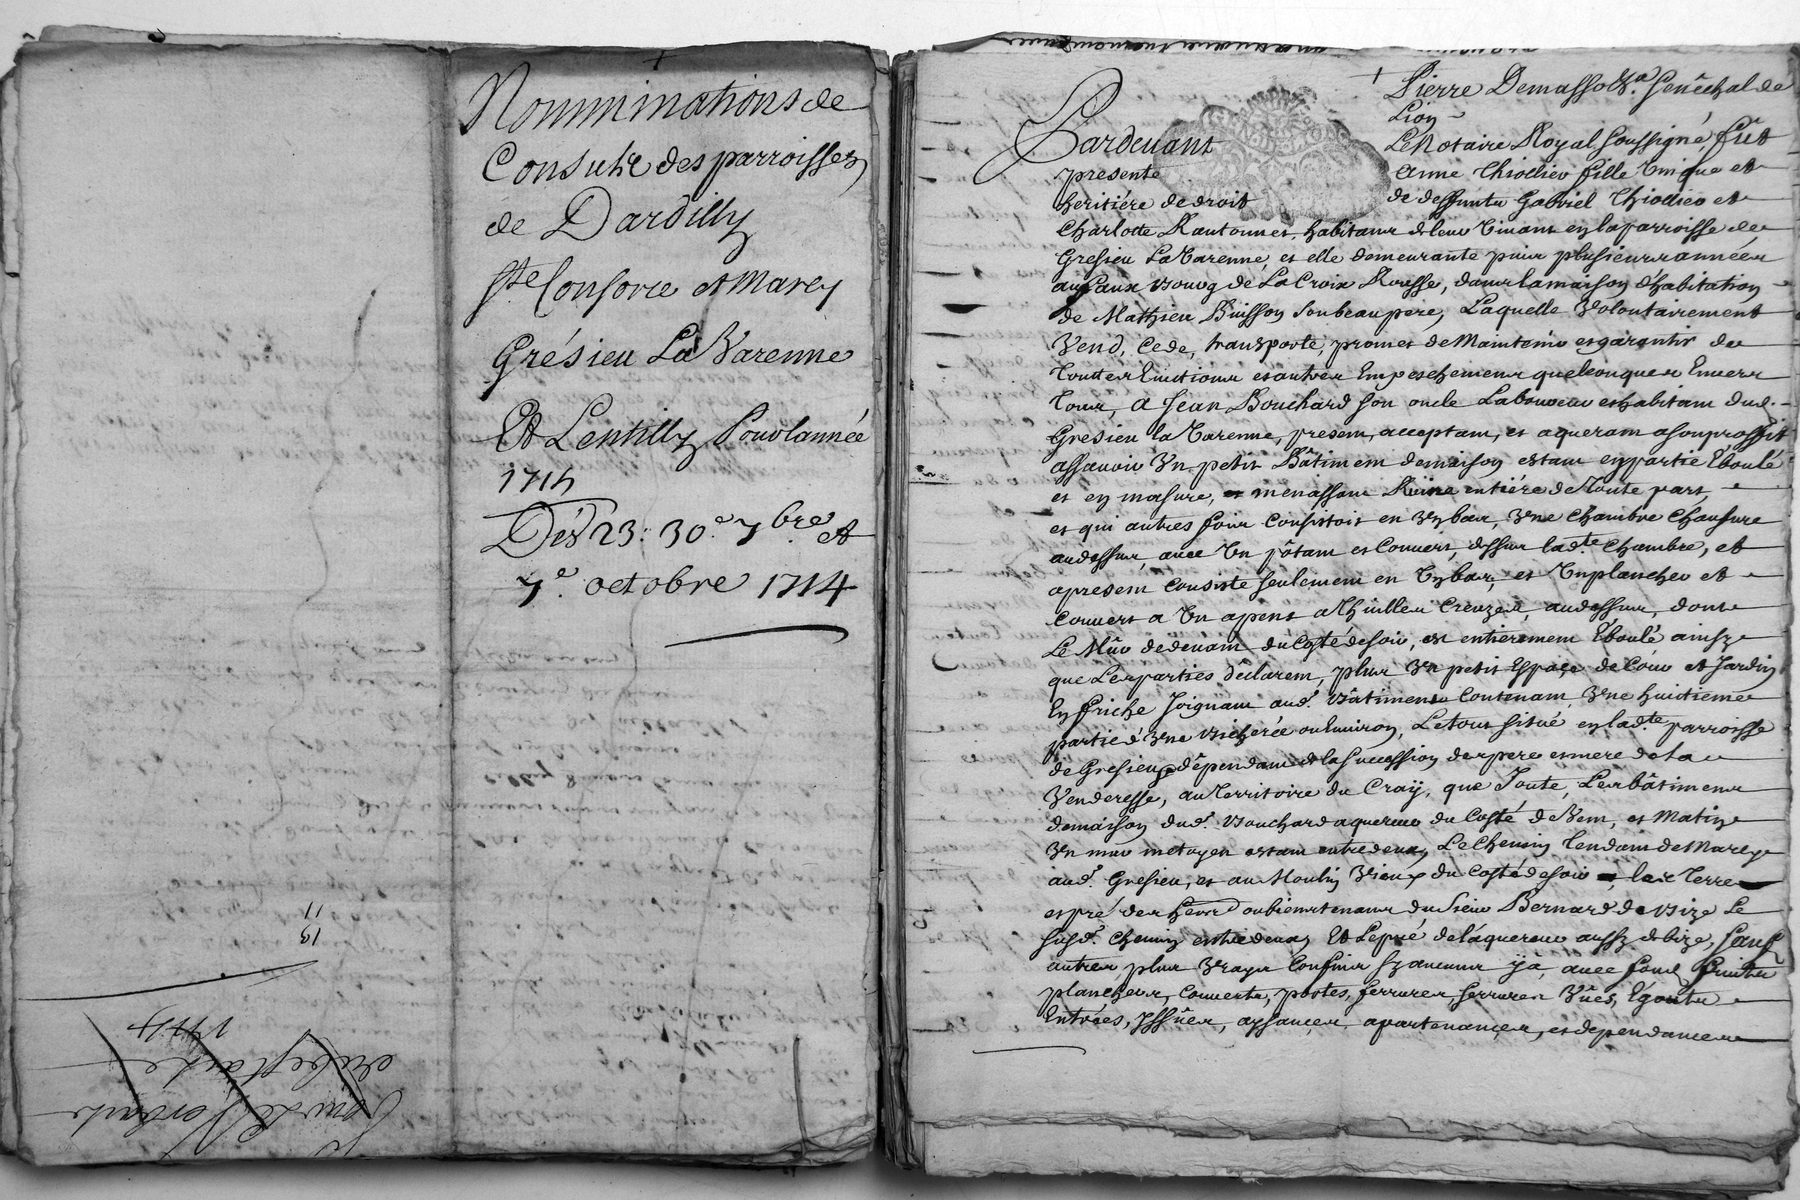 Nomminations de
Consulz des parroisses
de Dardilly
Ste Consorce et Marcy
Grésieu La Varenne
Et Lentilly Pour lannée
1715
Des 23: 30e 7bre et
7e octobre 1714
11
19
1714
Pierre Demasso &a Senêchal de
Lion
Pardevant Le Notaire Royal soussigné, fût
presente Anne Thiollier fille Unique et
heritiére de droit de deffuntz Gabriel Thiollier et
Charlotte Rantonnet, habitans de leur Vivant en la parroisse de
Gresieu La Varenne, et elle demeurante puis plusieurs années
au faux bourg de La Croix Rousse, dans la maison d'habitation
de Mathieu Buisson son beau pere, Laquelle Volontairement
Vend, Cede, transporte, promet de Maintenir et garantir de
Touttes Evictions et autres Empeschemens quelconques Envers
Tous, A Jean Bouchard son oncle Laboureur et habitant dud.
Gresieu la Varenne, present, acceptant, et aquerant a son proffit
assavoir Un petit Bâtiment de maison estant en partie Eboulé
et en masure, menassant Ruine entiére de Toute part
et qui autres fois Consistoit en Un bas, Une Chambre
au dessus, avec Un pôtam et Couvert, dessus lad.te Chambre, et
apresent Consiste seulement en Un bas, et Un plancher et
Couvert a Un apens a Thuilles Creuzes, au dessus, dont
Le Mûr de devant du Costé de soir, est entierement Eboulé ainsy
que Les parties déclarent, plus Un petit Espace de Cour et Jardin
En friche Joignant aud. Bâtiment Contenant Une huitieme
partie d'Une bicherée ou Environ, Le tout situé en lad.te parroisse
de Gresieu dépendant de la Succession des pere et mere de la
Venderesse, au Territoire du Craÿ, que Joute, Les bâtimens
de maison dud. Bouchard aquereur du Costé de Vent, et Matin
Un mur metoyen estant entredeux, Le Chemin Tendant de Marcy
aud. Gresieu, et au Moulin Vieux du Costé de soir, les Terre
et pré des hoirs ou bientenans du Sieur Bernard de bize Le
susd. Chemin entredeux Et Le pré de l'aquereur aussy de bize, sauf
autres plus Vrays Confins sy aucuns y a, avec fond fruits
planchers, Couverts, portes, ferrures, serrures Vûes, Egouts
Entrées, Yssûes, aysances, apartenances, et dependances